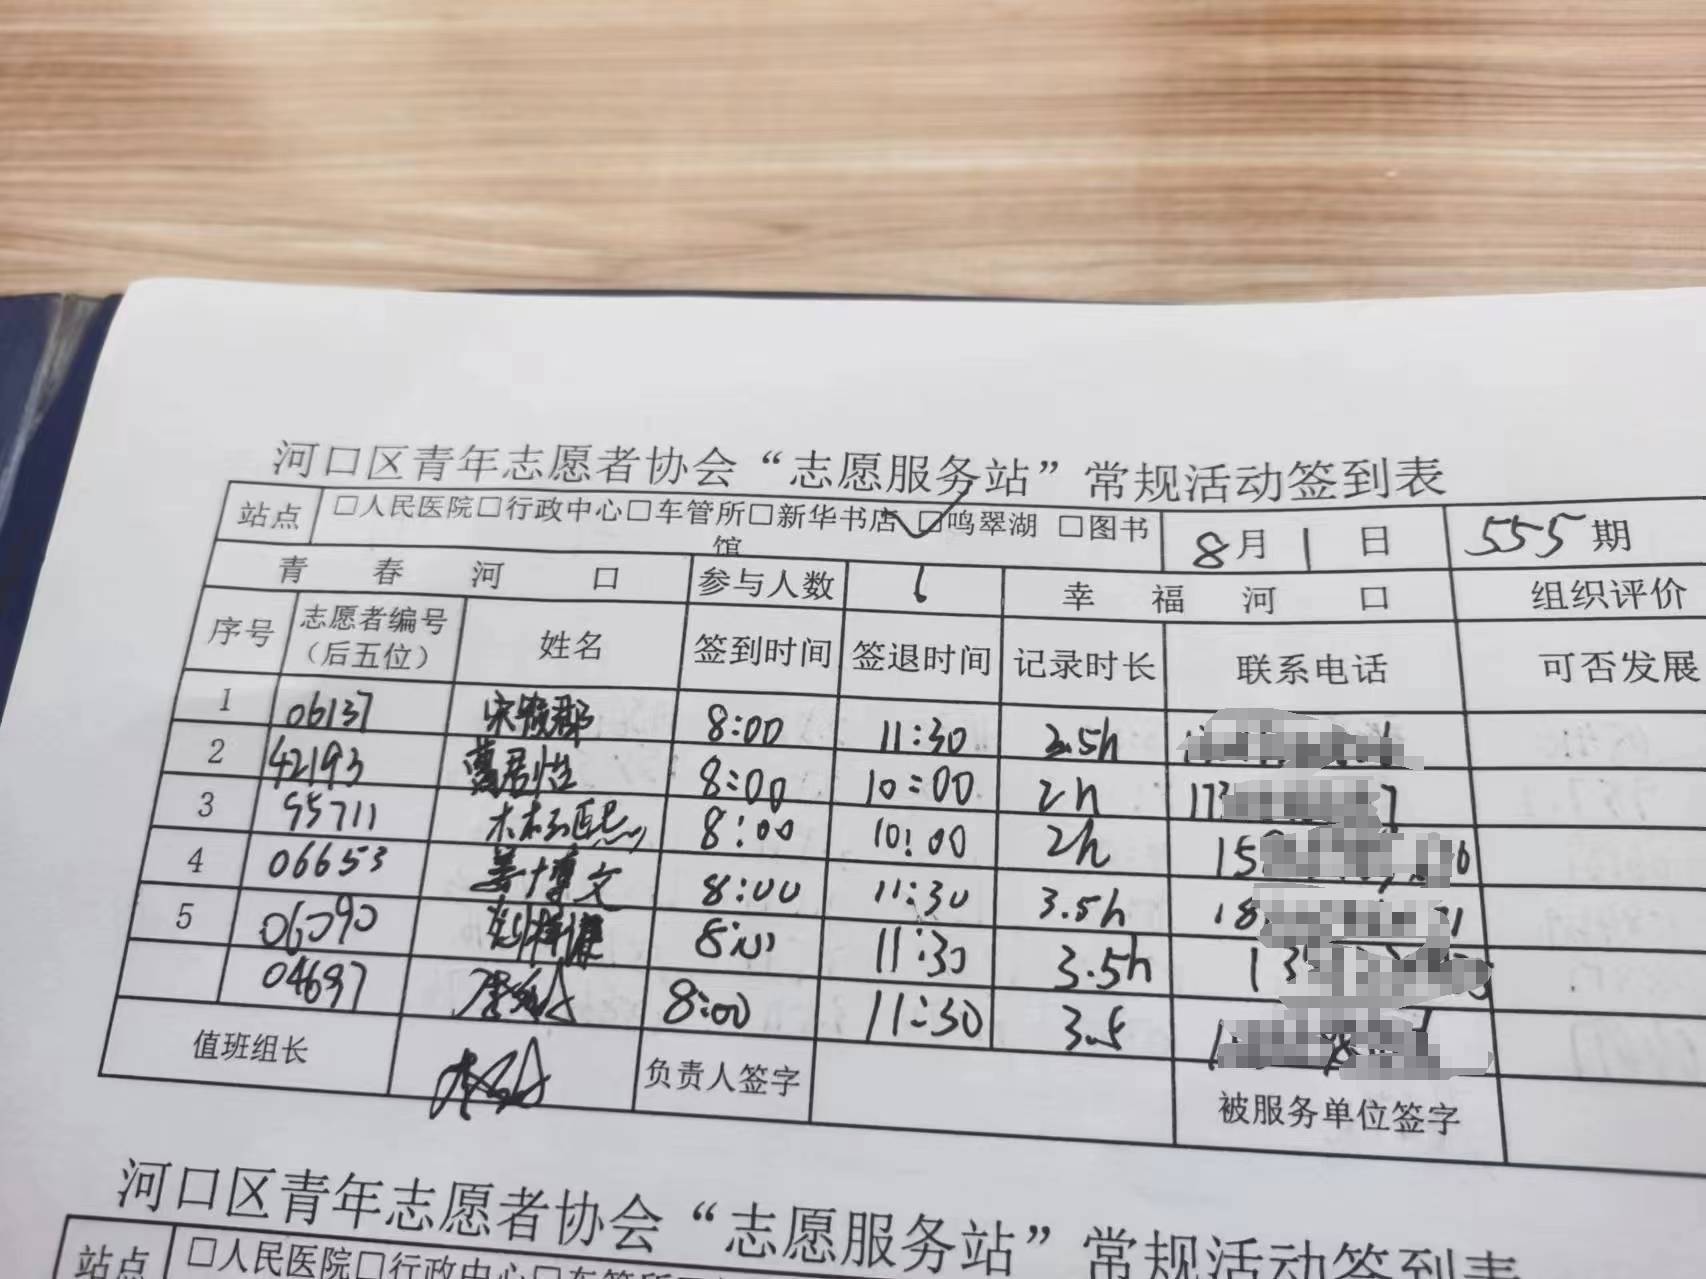 河口区青年志愿者协会“志愿服务站”常规活动签到表
站点 □人民医院□行政中心□车管所□新华书店 □鸣翠湖 □图书馆 8月1日 555期
青春河口 参与人数 6 幸福河口 组织评价
序号 志愿者编号（后五位） 姓名 签到时间 签退时间 记录时长 联系电话 可否发展
1 06137 8:00 11:30 2.5h
2 42193 8:00 10:00 2h 173
3 95711 8:00 10:00 2h 15
4 06653 姜博文 8:00 11:30 3.5h 18
5 06090 8:00 11:30 3.5h 13
04697 8:00 11:30 3.5
值班组长 负责人签字 被服务单位签字
河口区青年志愿者协会“志愿服务站”常规活动签到表
站点 □人民医院□行政中心□车管所